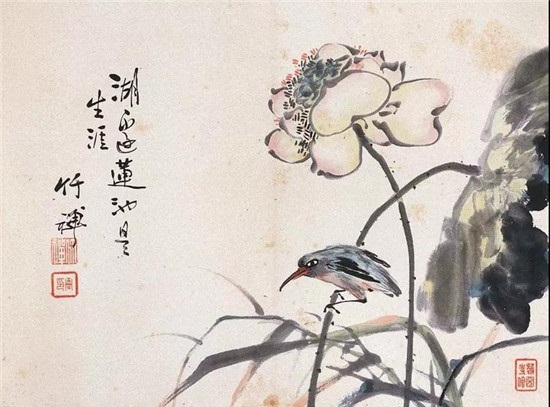 湖邊蓮池是
生涯
竹禪